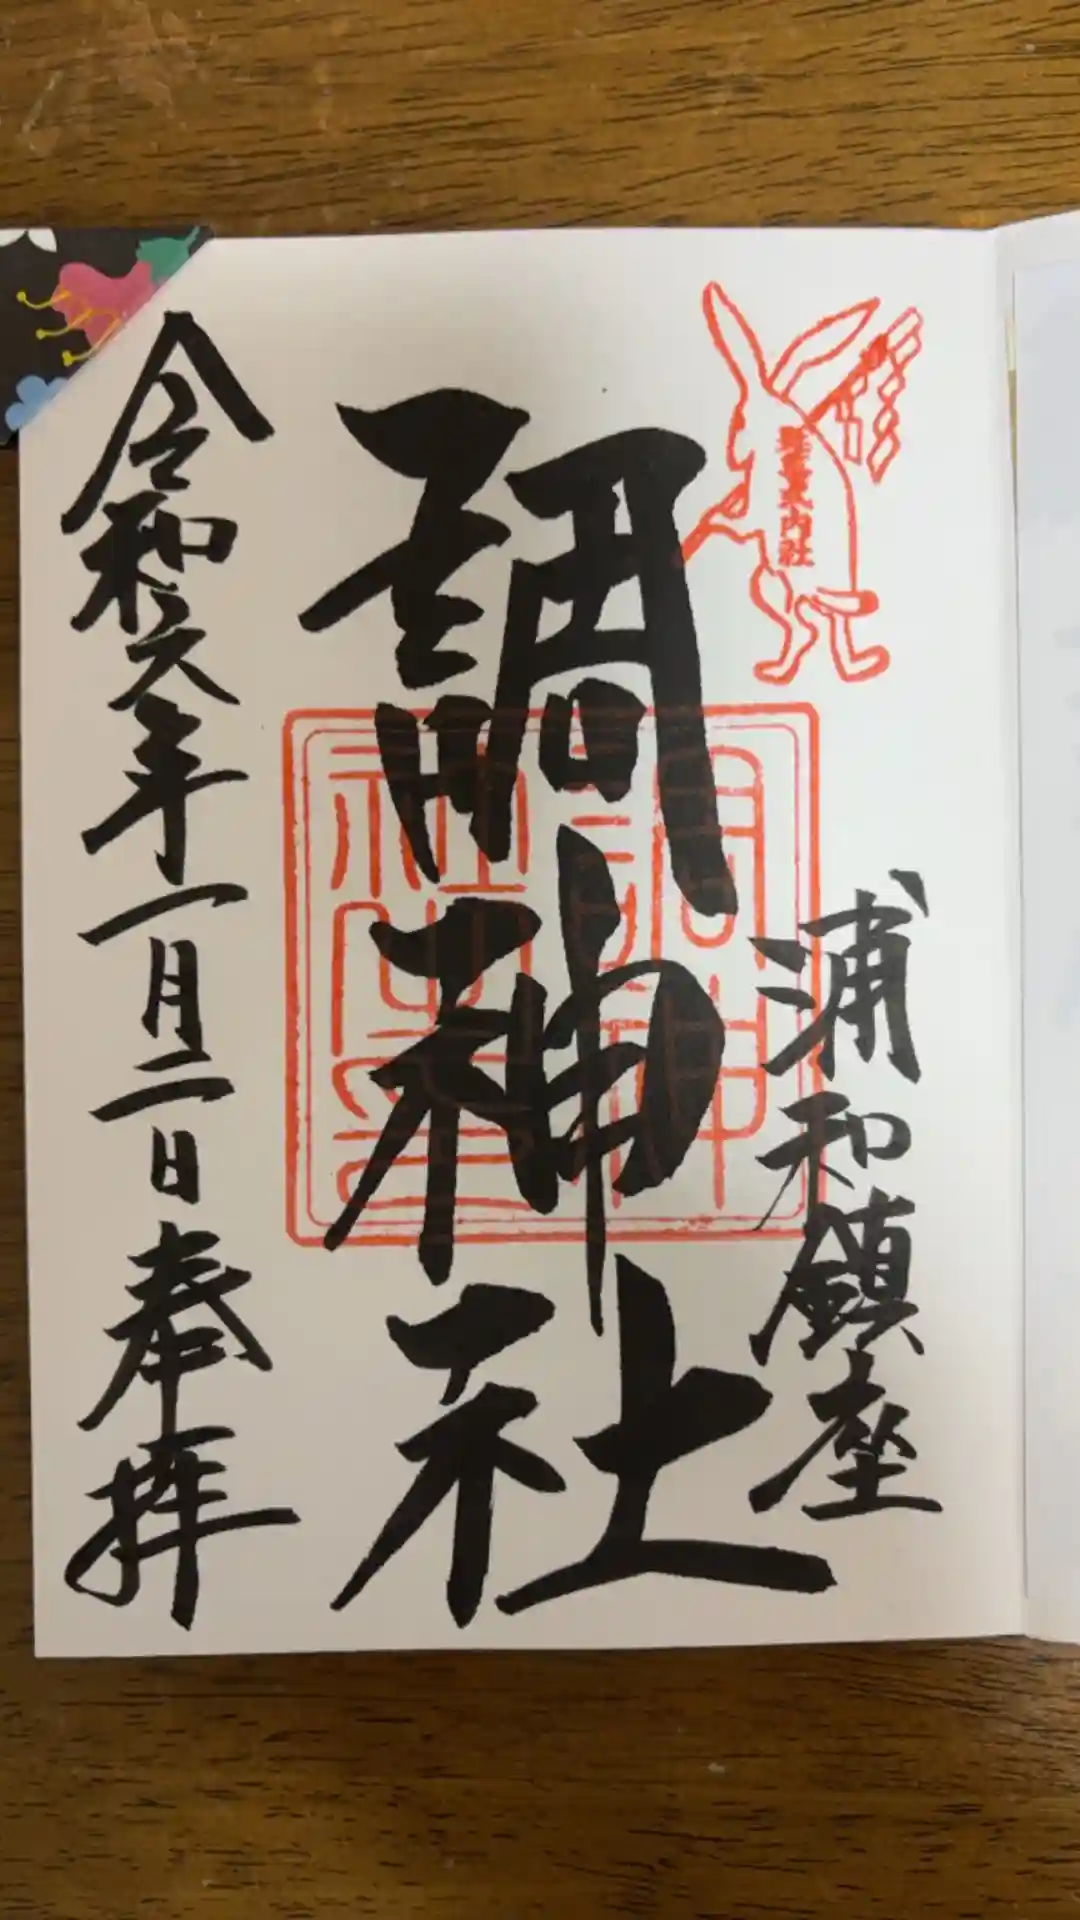 浦和鎮座
調神社
調神社之印
令和六年一月二日奉拝